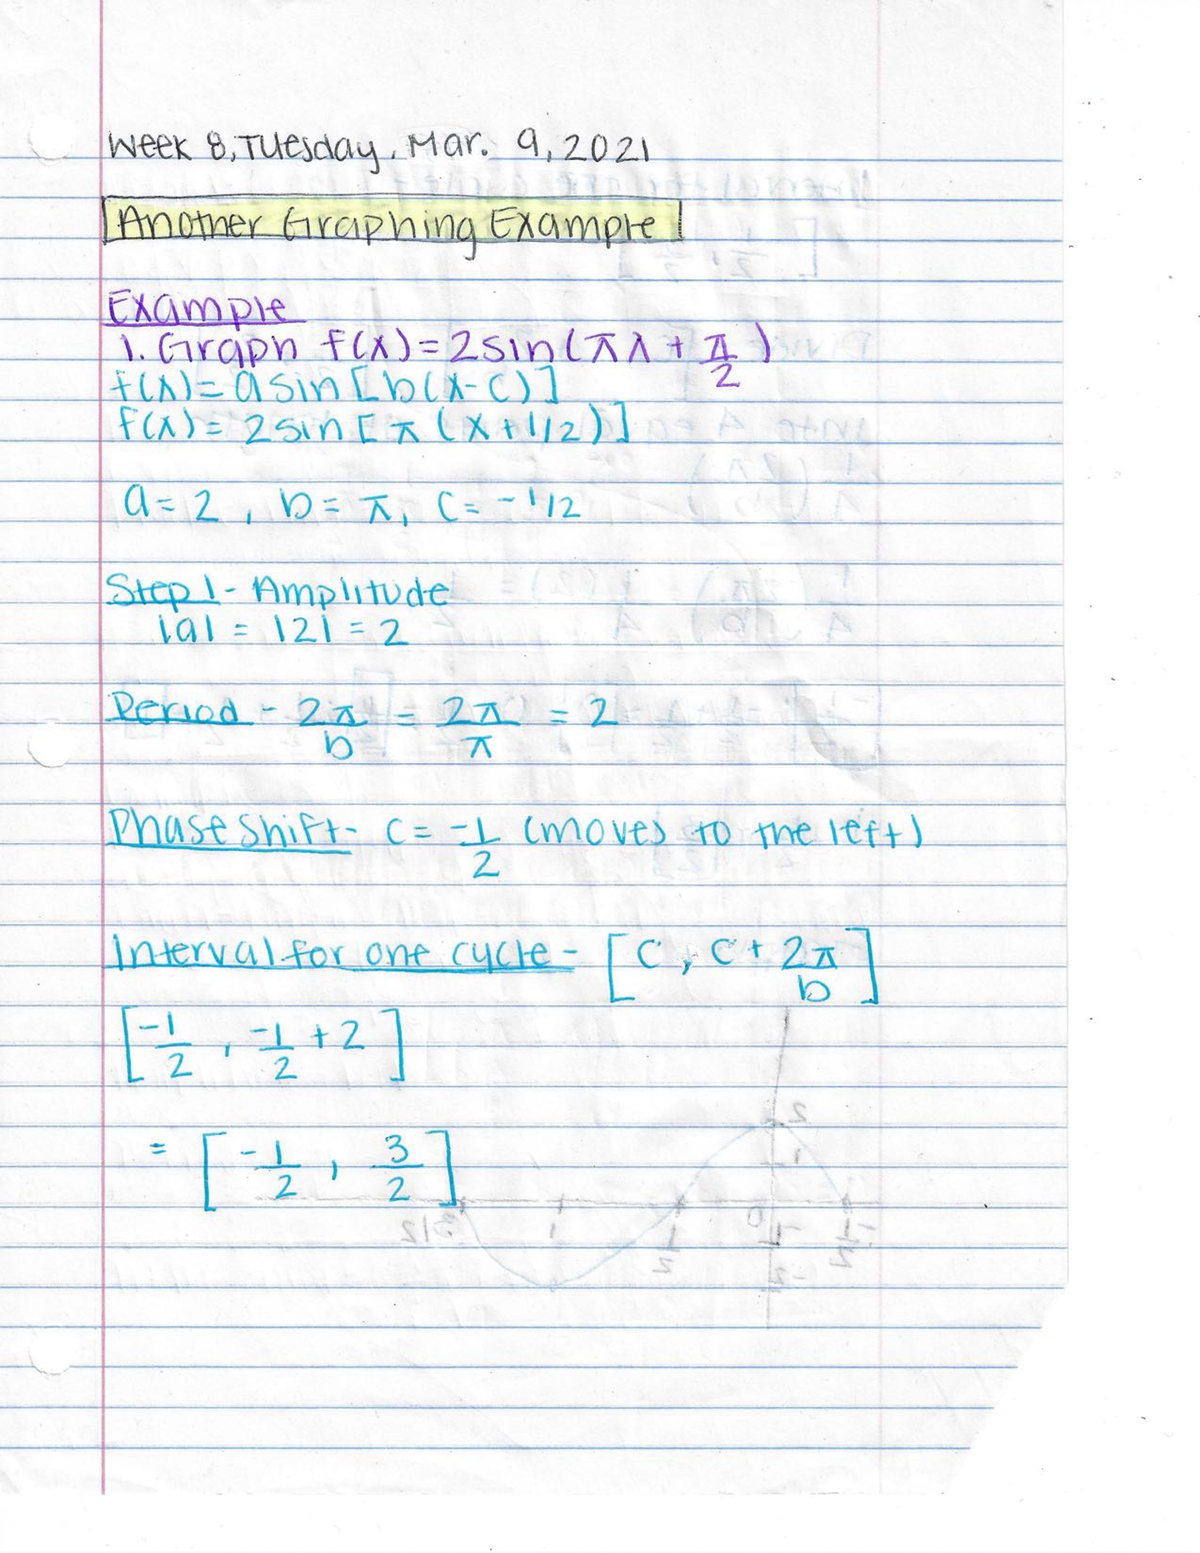 Week 8, Tuesday, Mar. 9, 2021
Another Graphing Example
Example
1. Graph f(x) = 2 sin(πx + π/2)
f(x) = a sin [b(x-c)]
f(x) = 2 sin [π (x+1/2)]
a = 2, b = π, c = -1/2
Step 1 - Amplitude
|a| = |2| = 2
Period - 2π/b = 2π/π = 2
Phase Shift - c = -1/2 (moves to the left)
Interval for one cycle - [c, c + 2π/b]
[-1/2, -1/2 + 2]
= [-1/2, 3/2]